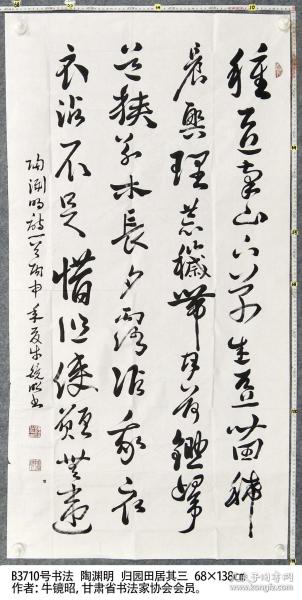 種豆南山下草生豆苗稀
晨興理荒穢帶月荷鋤歸
道狹草木長夕露沾我衣
衣沾不足惜但使願無違
陶淵明詩一首丙申年夏牛鏡昭書
B3710号书法 陶渊明 归园田居其三 68×138cm
作者:牛镜昭,甘肃省书法家协会会员。